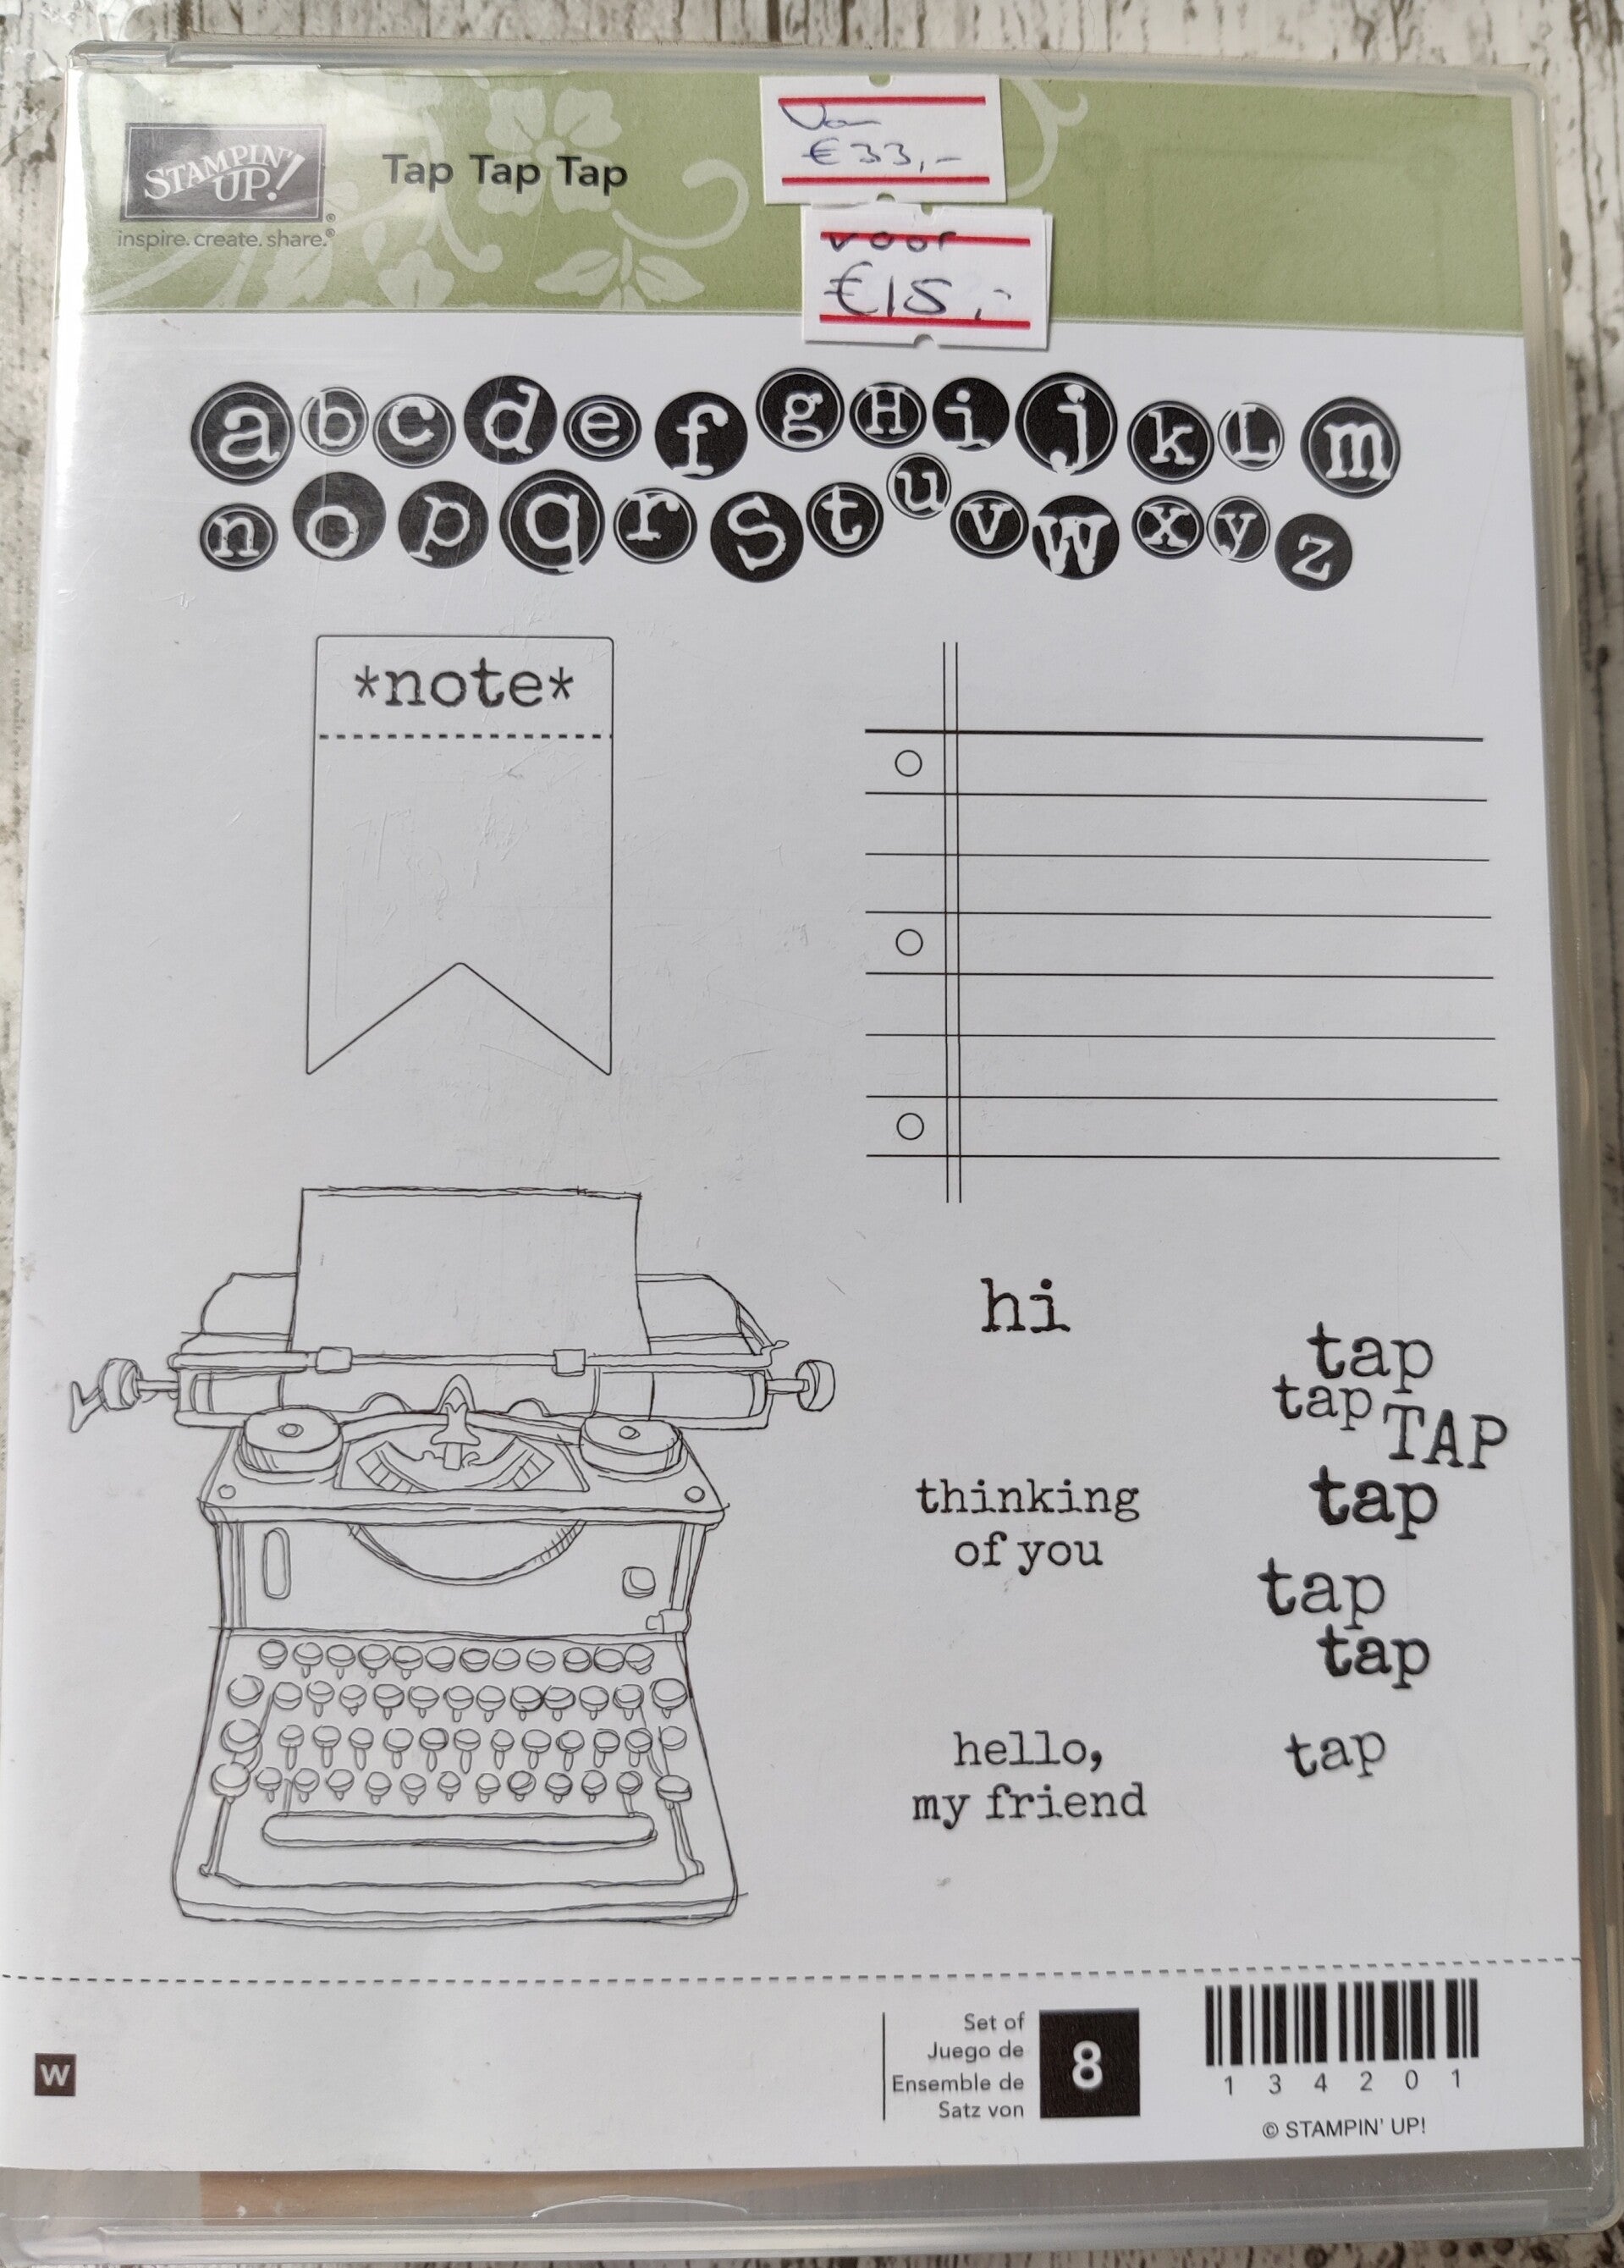 STAMPIN' UP!®
inspire.create.share.®
Tap Tap Tap
Van
€33,-
voor
€15,-
a b c d e f g H i j k L m
n o p q r s t u v w x y z
*note*
hi
thinking
of you
hello,
my friend
tap
tap TAP
tap
tap
tap
tap
W
Set of
Juego de
Ensemble de
Satz von
8
134201
© STAMPIN' UP!